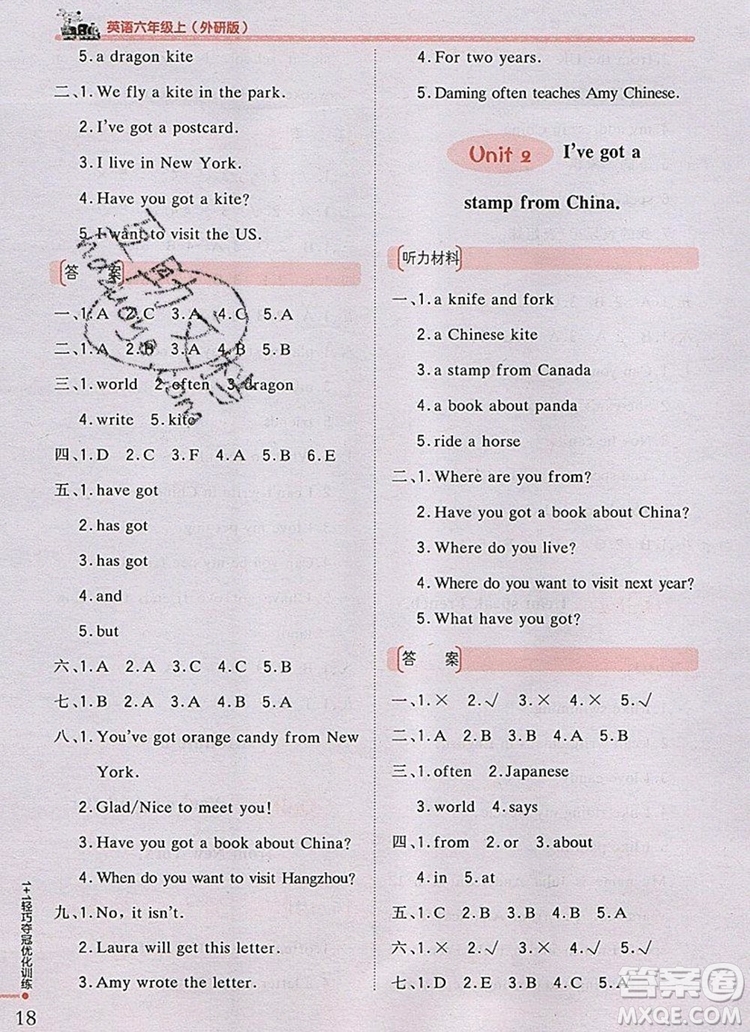 英语六年级上(外研版)
5. a dragon kite
二、1. We fly a kite in the park.
2. I've got a postcard.
3. I live in New York.
4. Have you got a kite?
5. I want to visit the US.
答 案
一、1. A 2. C 3. A 4. C 5. A
二、1. A 2. B 3. A 4. B 5. A
三、1. world 2. often 3. dragon
4. write 5. kite
四、1. D 2. C 3. F 4. A 5. B 6. E
五、1. have got
2. has got
3. has got
4. and
5. but
六、1. B 2. A 3. C 4. C 5. B
七、1. B 2. A 3. A 4. C 5. B
八、1. You've got orange candy from New
York.
2. Glad/Nice to meet you!
3. Have you got a book about China?
4. When do you want to visit Hangzhou?
九、1. No, it isn't.
2. Laura will get this letter.
3. Amy wrote the letter.
4. For two years.
5. Daming often teaches Amy Chinese.
Unit 2 I've got a
stamp from China.
听力材料
一、1. a knife and fork
2. a Chinese kite
3. a stamp from Canada
4. a book about panda
5. ride a horse
二、1. Where are you from?
2. Have you got a book about China?
3. Where do you live?
4. Where do you want to visit next year?
5. What have you got?
答 案
一、1. × 2. √ 3. × 4. × 5. √
二、1. A 2. B 3. B 4. A 5. B
三、1. often 2. Japanese
3. world 4. says
四、1. from 2. or 3. about
4. in 5. at
五、1. C 2. B 3. C 4. A 5. B
六、1. × 2. √ 3. × 4. √ 5. √
七、1. C 2. B 3. A 4. B 5. A
1+1轻巧夺冠优化训练
18
答案圈
MXQE.COM